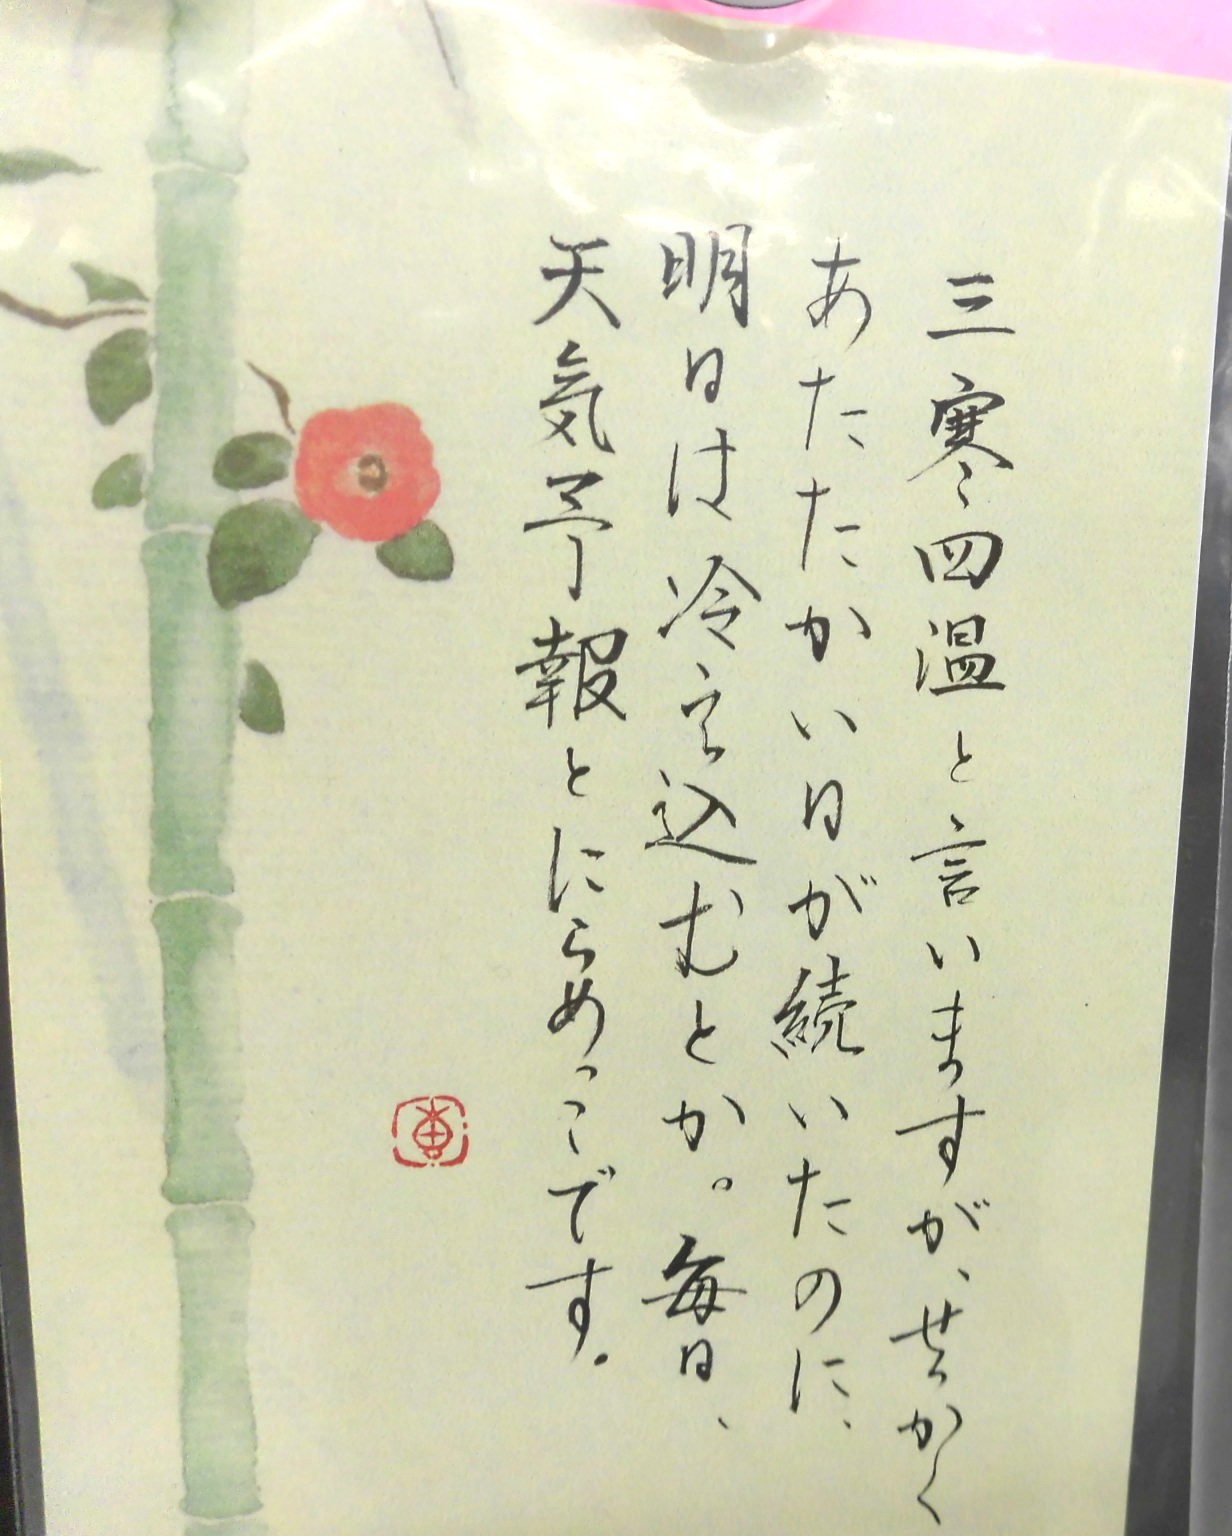 三寒四温と言いますが、せっかく
あたたかい日が続いたのに、
明日は冷え込むとか。毎日、
天気予報とにらめっこです。